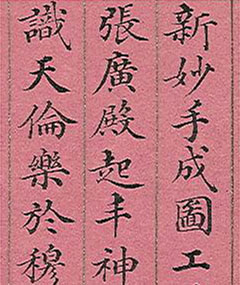 新妙手成圖工
張廣殿起丰神
識天倫樂於穆